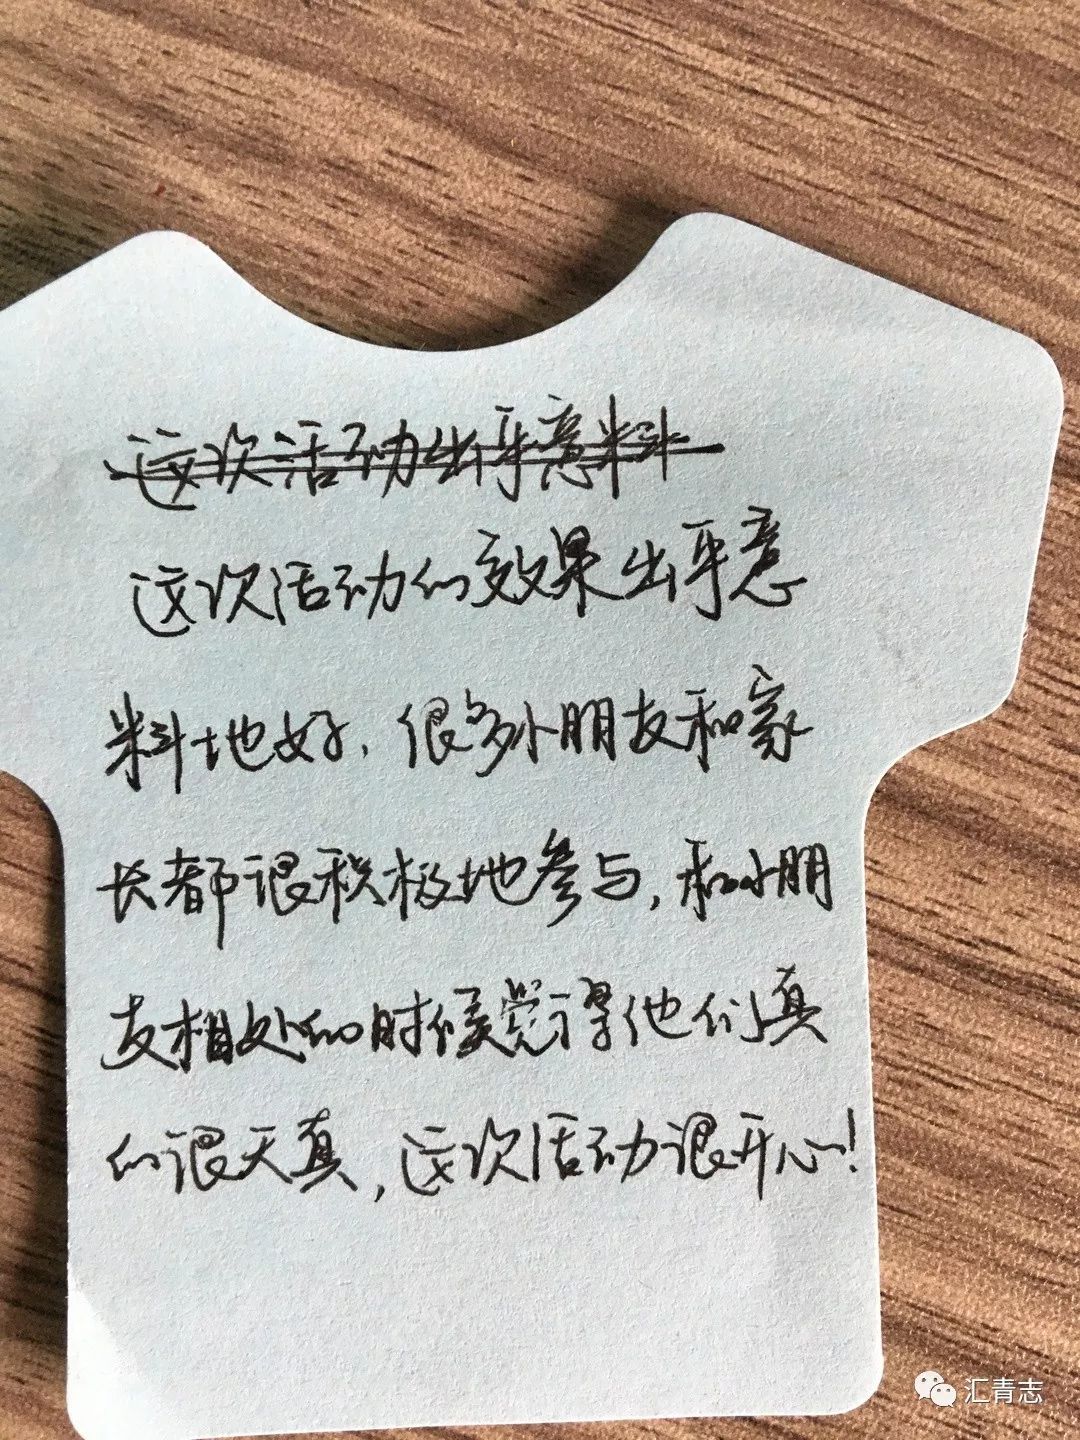 这次活动出乎意料
这次活动的效果出乎意
料地好，很多小朋友和家
长都很积极地参与，和小朋
友相处的时候觉得他们真
的很天真，这次活动很开心！
汇青志